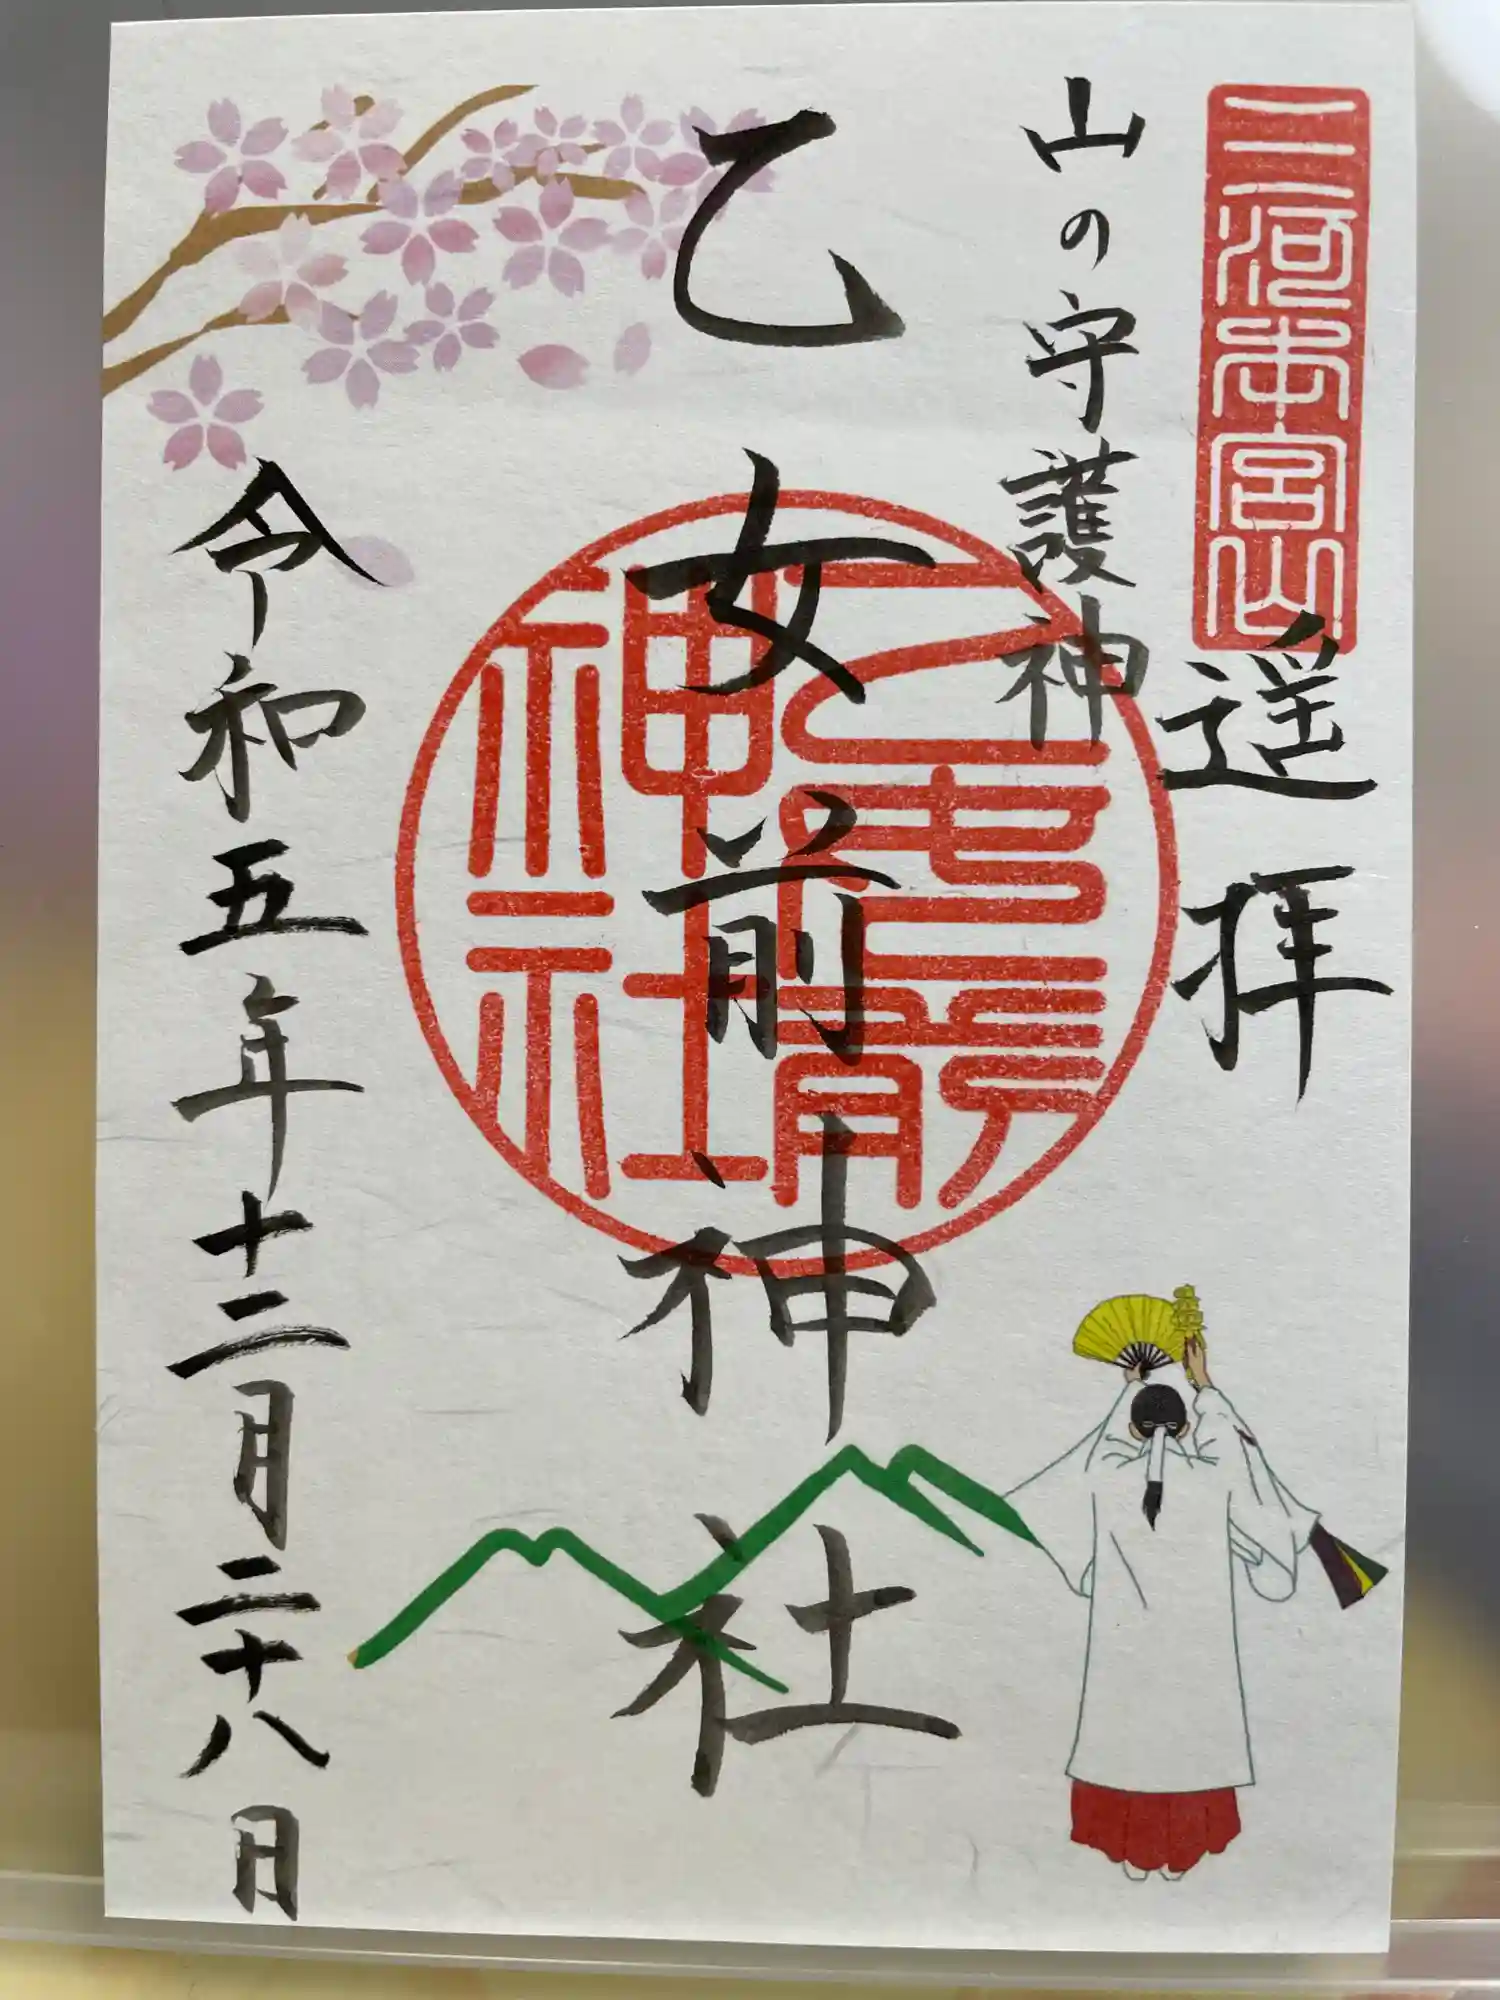 三河本宮山
遥拝
山の守護神
乙女前神社
乙女前
神社
令和五年十二月二十八日